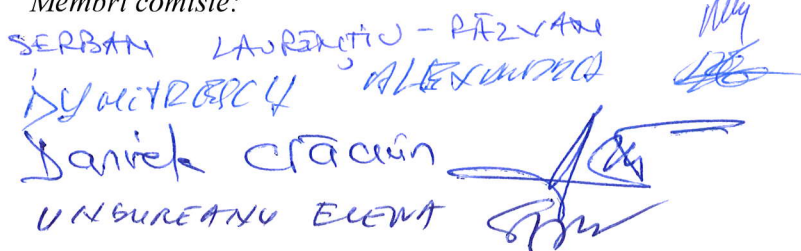 Membri comisie:
SERBAN LAURENȚIU - RĂZVAN
DUMITRESCU ALEXANDRA
Daniela Crăciun
UNGUREANU ELENA